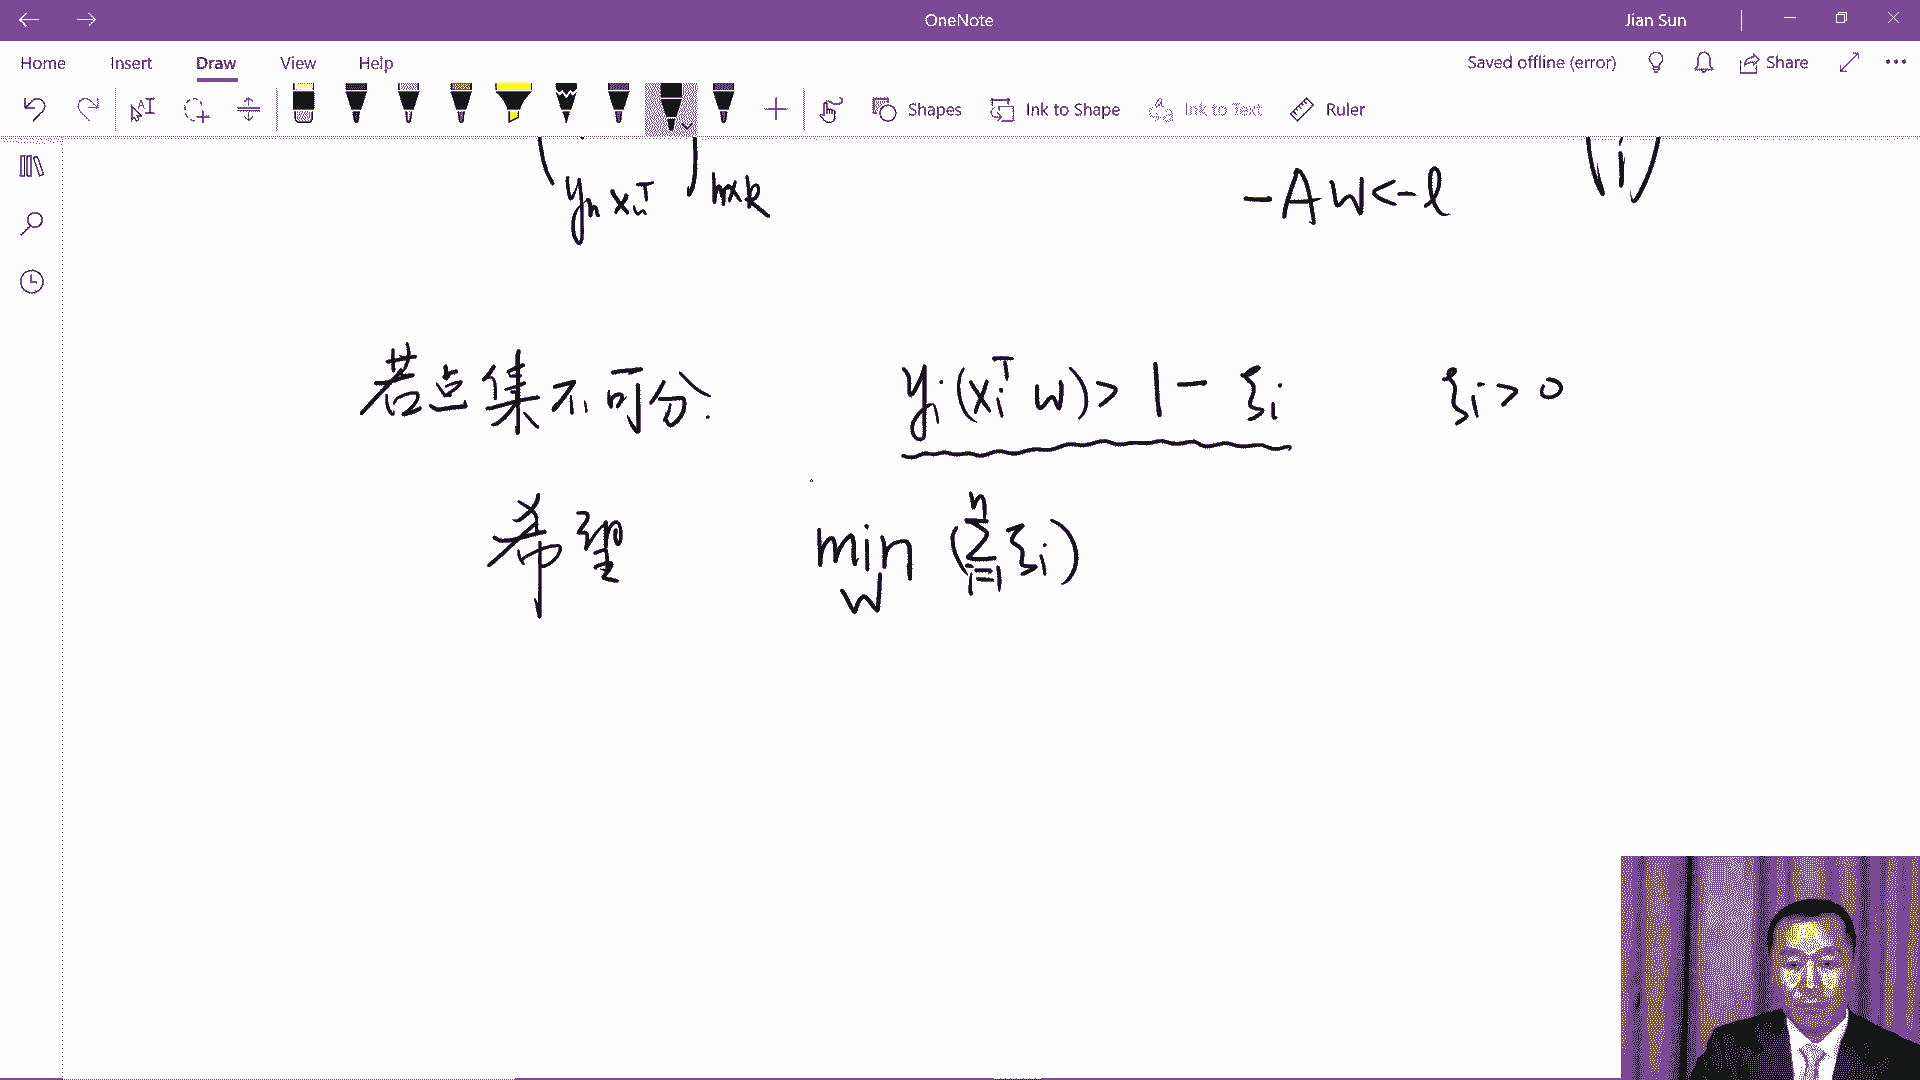 OneNote
Jian Sun
Home Insert Draw View Help
Saved offline (error)
Share
Shapes Ink to Shape Ink to Text Ruler
yₙ xₙᵀ
n×k
-AW<-l
若点集不可分:
yᵢ(xᵢᵀ w) > 1 - ξᵢ
ξᵢ > 0
希望
min (Σ ξᵢ)
n
i=1
W